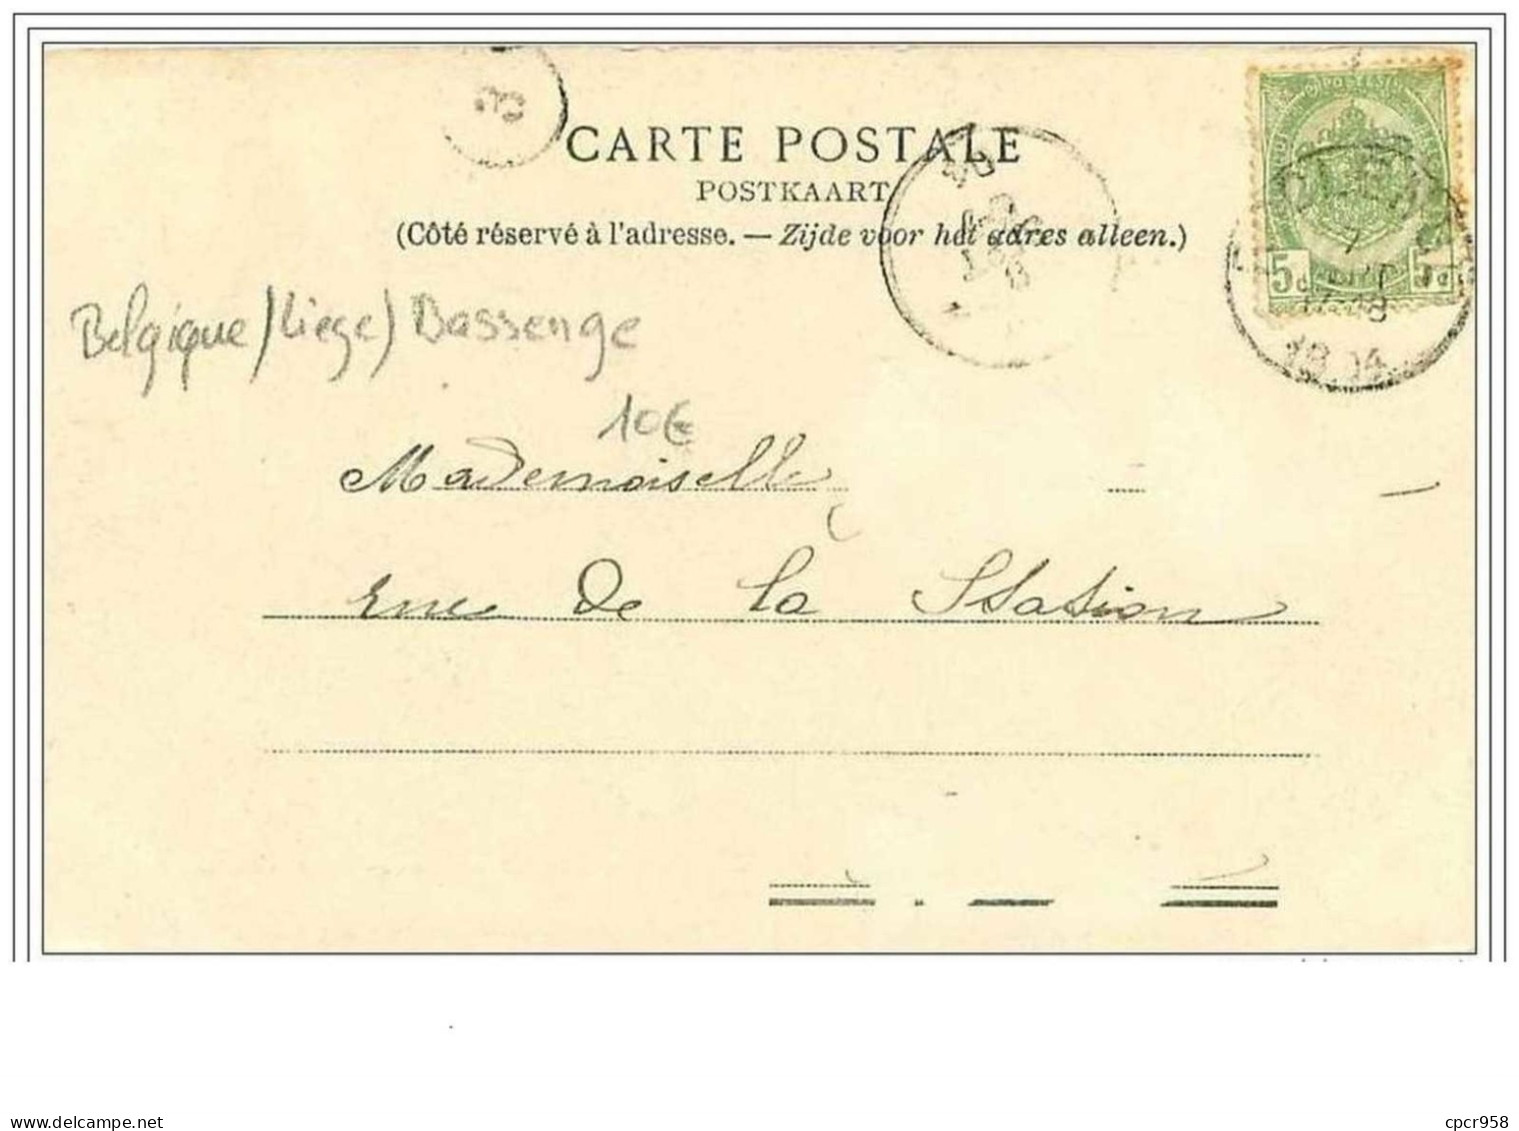 3
CARTE POSTALE
POSTKAART
(Côté réservé à l'adresse. — Zijde voor het adres alleen.)
5c 5c
7
1904
Belgique/Liège/Bassenge
10€
Mademoiselle
rue de la Station
delcampe.net
cpcr958